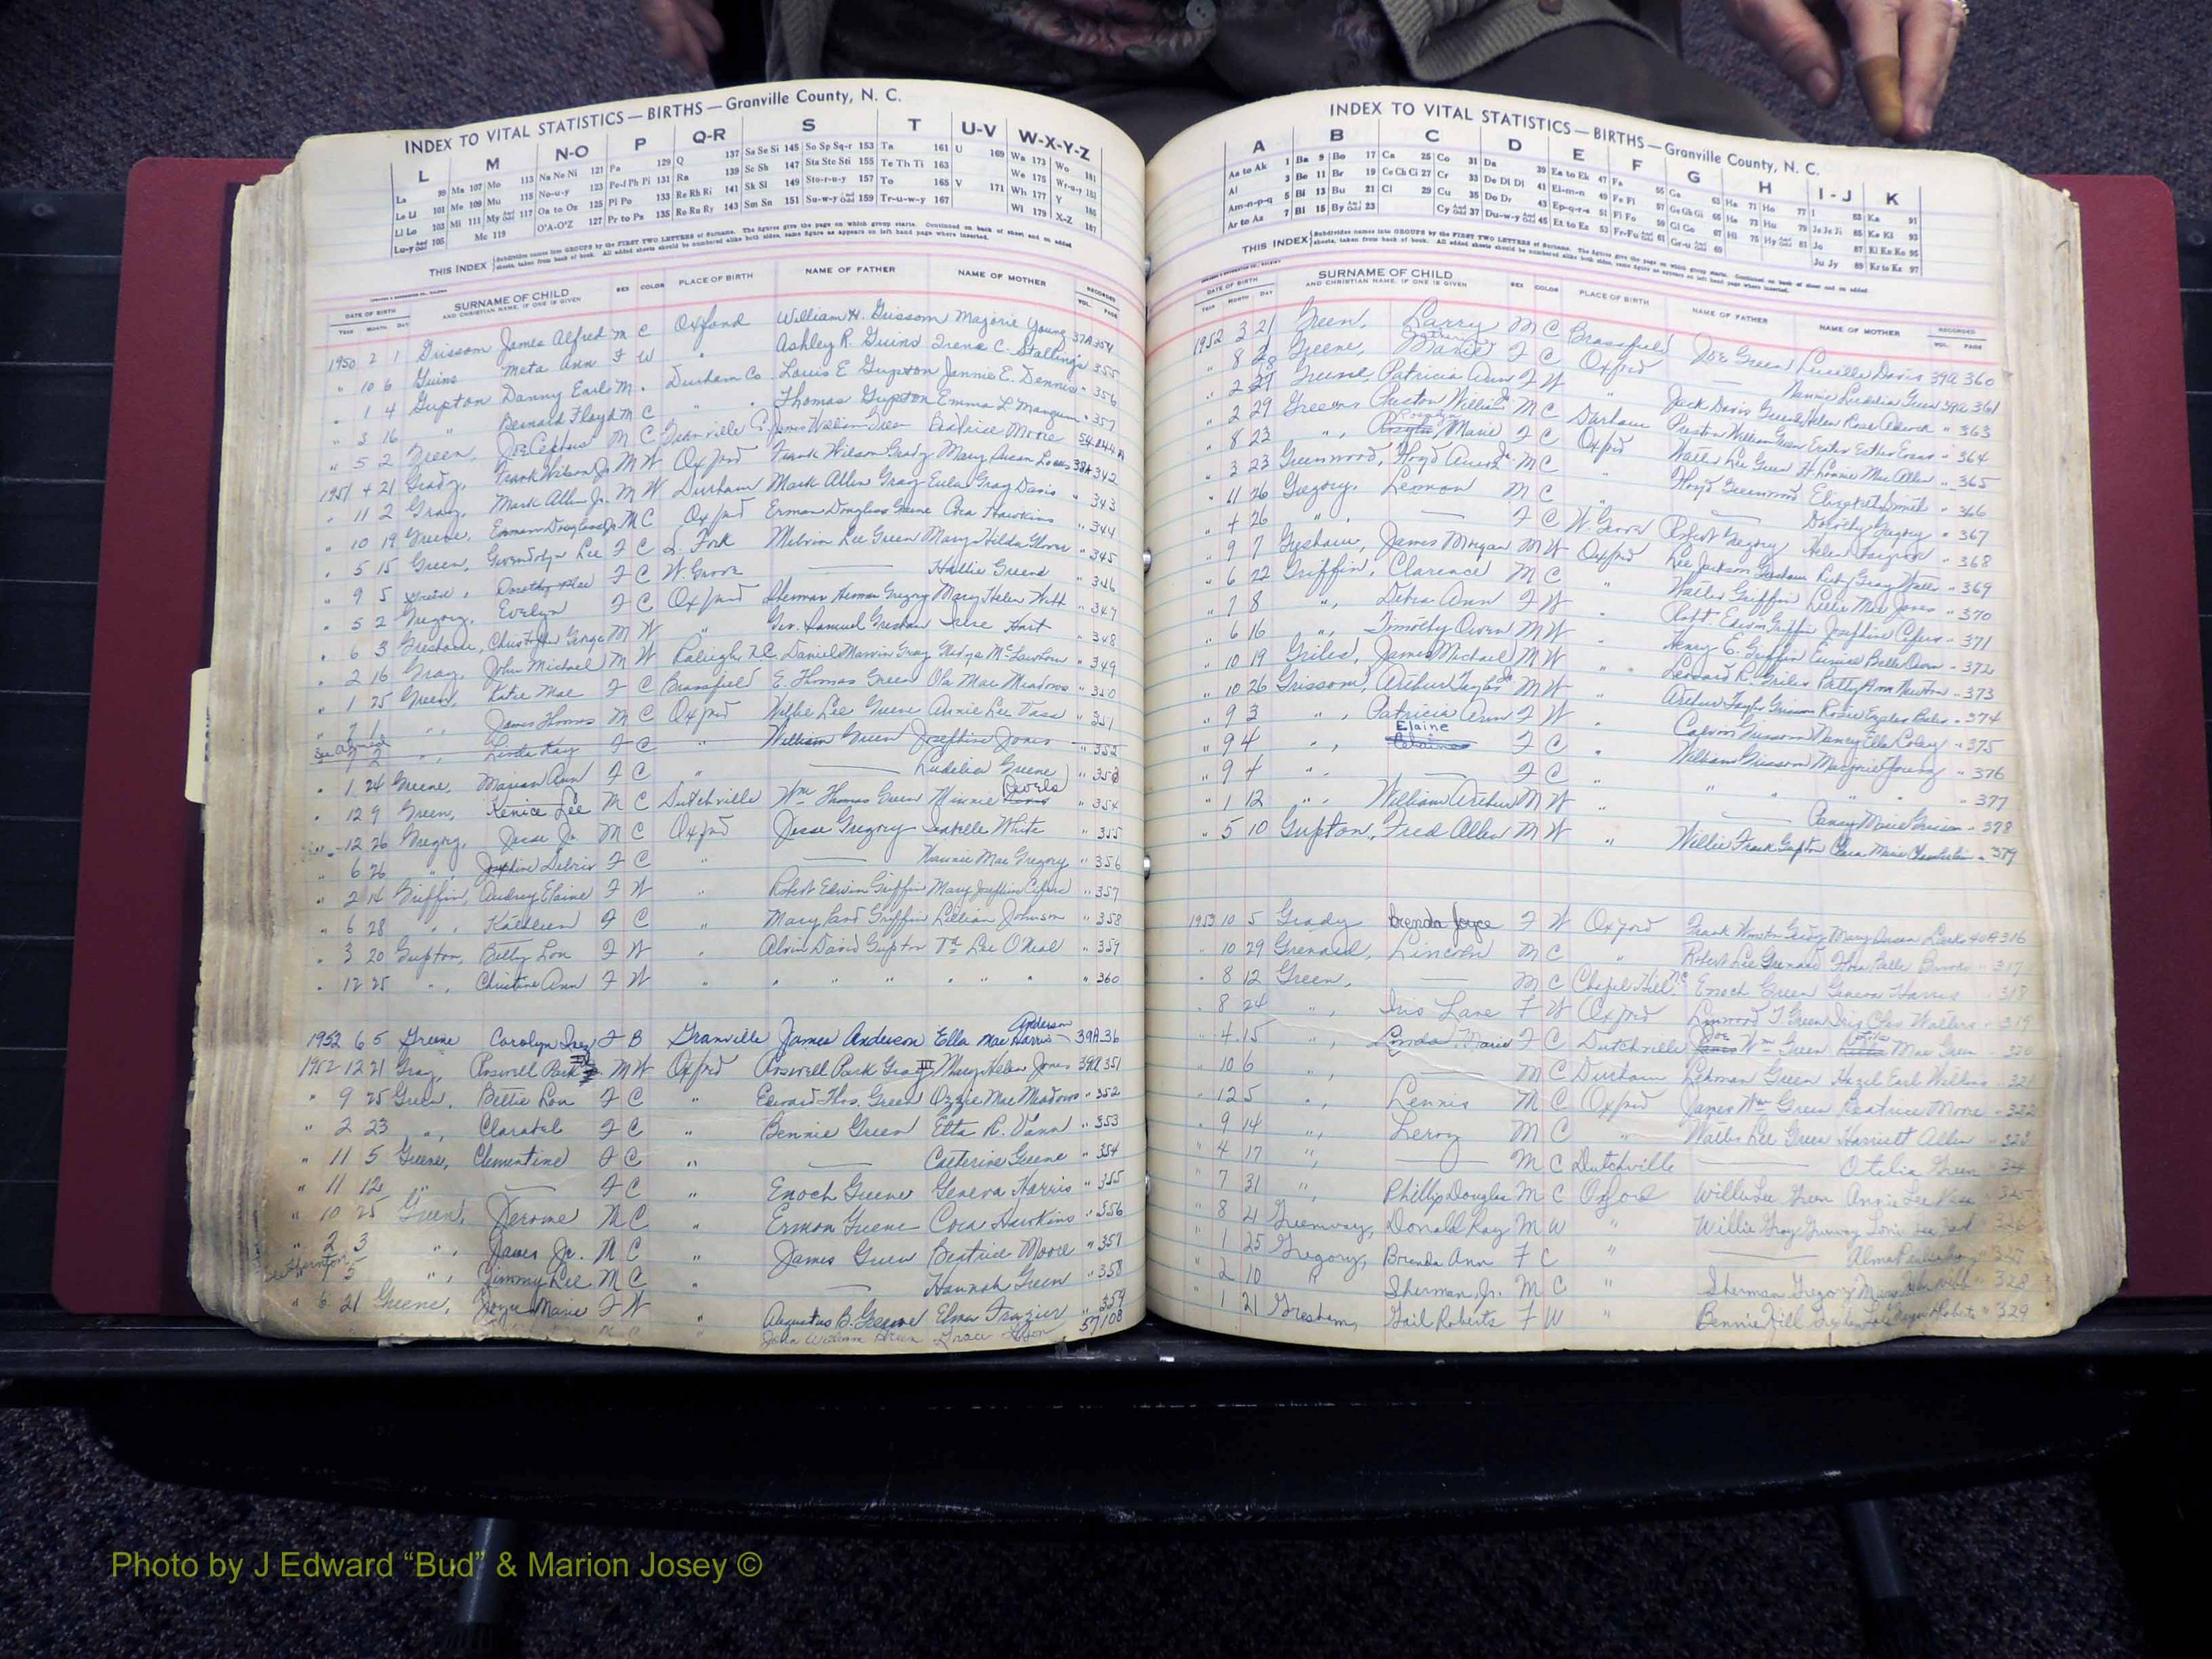 INDEX TO VITAL STATISTICS — BIRTHS — Granville County, N. C.
L M N-O P Q-R S T U-V W-X-Y-Z
La 99 Ma 107 Mo 113 Na Ne Ni 121 Pa 129 Q 137 Sa Se Si 145 So Sp Sq-r 153 Ta 161 U 169 Wa 173 Wo 181
Le Li 101 Me 109 Mu 115 No-u-y 123 Pe-f Ph Pi 131 Ra 139 Sc Sh 147 Sta Ste Sti 155 Te Th Ti 163 We 175 Wr-u-y 183
Ll Lo 103 Mi 111 My And Odd 117 Oa to Oz 125 Pl Po 133 Re Rh Ri 141 Sk Sl 149 Sto-r-u-y 157 To 165 V 171 Wh 177 Y 185
Lu-y And Odd 105 Mc 119 O'A-O'Z 127 Pr to Ps 135 Ro Ru Ry 143 Sm Sn 151 Su-w-y And Odd 159 Tr-u-w-y 167 Wi 179 X-Z 187
THIS INDEX Subdivides names into GROUPS by the FIRST TWO LETTERS of Surname. The figures give the page on which group starts. Continued on back of sheet and on added
sheets, taken from back of book. All added sheets should be numbered alike both sides, same figure as appears on left hand page where inserted.
DATE OF BIRTH SURNAME OF CHILD SEX COLOR PLACE OF BIRTH NAME OF FATHER NAME OF MOTHER RECORDED
YEAR MONTH DAY AND CHRISTIAN NAME, IF ONE IS GIVEN VOL. PAGE
1950 2 1 Grissom James Alfred M C Oxford William H. Grissom Marjorie Young 37A 354
" 10 6 Guins Meta Ann F W " Ashley R. Guins Irene C. Stallings 355
" 1 4 Gupton Danny Earl M " Durham Co. Louis E Gupton Jannie E. Dennis " 356
" 3 16 " Bernard Floyd M C " " Thomas Gupton Emma L Mangum " 357
" 5 2 Green, Joe Cephus M C Granville James William Green Beatrice Moore
1951 4 21 Grady, Frank Wilson Jr M W Oxford Frank Wilson Grady Mary Susan 38A 342
" 11 2 Gray, Mark Allen Jr. M W Durham Mark Allen Gray Eula Gray Davis " 343
" 10 19 Greene, Erman Douglass Jr M C Oxford Erman Douglass Greene Cora Hawkins " 344
" 5 15 Green, Gwendolyn Lee F C S. Fork Melvin Lee Green Mary Hilda Glover " 345
" 9 5 Dorothy Mae F C W. Grove Hallie Greene " 346
" 5 2 Gregory, Evelyn F C Oxford Sherman Herman Gregory Mary Helen Webb " 347
" 6 3 Christopher George M W " Geo. Samuel Gresham Hart " 348
" 2 16 Gray, John Michael M W Raleigh, N.C. Daniel Marvin Gray Gladys McLawhorn " 349
" 1 25 Green, Katie Mae F C Brassfield E. Thomas Green Ola Mae Meadows " 350
" 7 1 " , James Thomas M C Oxford Willie Lee Greene Annie Lee Vass " 351
7 2 " , Linda Kay F C " William Green Josephine Jones 352
" 1 24 Greene, Marian Ann F C " Ludelia Greene "
" 12 9 Green, Kenice Lee M C Dutchville Wm Thomas Green Minnie Revels " 354
" 12 26 Gregory, Jesse Jr. M C Oxford Jesse Gregory Isabelle White " 355
" 6 26 " , F C " Nannie Mae Gregory " 356
" 2 14 Griffin, Audrey Elaine F W " Robert Edwin Griffin Mary Josephine " 357
" 6 28 " , Kathleen F C " Griffin Lillian Johnson " 358
" 3 20 Gupton, Betty Lou F W " Alvin David Gupton Lee O'Neal " 359
" 12 25 " , Christine Ann F W " " " " " " 360
1952 6 5 Greene Carolyn Inez F B Granville James Anderson Ella Mae Harris Anderson 39A 36
1952 12 21 Gray, Roswell Park M W Oxford Roswell Park Gray III Mary Helen Jones 39A 351
" 9 25 Green, Bettie Lou F C " Edward Thos. Green Ozzie Mae Meadows " 352
" 2 23 " , Clarabel F C " Bennie Green Etta R. Vann " 353
" 11 5 Greene, Clementine F C " Catherine Greene " 354
" 11 12 " F C " Enoch Greene Geneva Harris " 355
" 10 25 Green, Jerome M C " Ermon Greene Cora Hawkins " 356
" 2 3 " , James Jr. M C " James Green Beatrice Moore " 357
" 5 " , Jimmy Lee M C " Hannah Green " 358
" 6 21 Greene, Joyce Marie F W " Augustus B. Greene Elma Frazier " 359
John William Green Grace 57 108
INDEX TO VITAL STATISTICS — BIRTHS — Granville County, N. C.
A B C D E F G H I - J K
Aa to Ak 1 Ba 9 Bo 17 Ca 25 Co 31 Da 39 Ea to Ek 47 Fa 55 Ga 63 Ha 71 Ho 77 I 83 Ka 91
Al 3 Be 11 Br 19 Ce Ch Ci 27 Cr 33 De Di Dl 41 El-m-n 49 Fe Fi 57 Ge Gh Gi 65 He 73 Hu 79 Ja Je Ji 85 Ke Ki 93
Am-n-p-q 5 Bi 13 Bu 21 Cl 29 Cu 35 Do Dr 43 Ep-q-r-s 51 Fl Fo 59 Gl Go 67 Hi 75 Hy And Odd 81 Jo 87 Kl Kn Ko 95
Ar to Az 7 Bl 15 By And Odd 23 Cy And Odd 37 Du-w-y And Odd 45 Et to Ez 53 Fr-Fu And Odd 61 Gr-u And Odd 69 Ju Jy 89 Kr to Kz 97
THIS INDEX Subdivides names into GROUPS by the FIRST TWO LETTERS of Surname. The figures give the page on which group starts. Continued on back of sheet and on added
sheets, taken from back of book. All added sheets should be numbered alike both sides, same figure as appears on left hand page where inserted.
DATE OF BIRTH SURNAME OF CHILD SEX COLOR PLACE OF BIRTH NAME OF FATHER NAME OF MOTHER RECORDED
YEAR MONTH DAY AND CHRISTIAN NAME, IF ONE IS GIVEN VOL. PAGE
1952 3 21 Green, Larry M C Brassfield Joe Green Lucille Davis 39A 360
" 8 28 Greene, Marie F C Oxford Nannie Ludelia Green 39A 361
" 2 27 Greene, Patricia Ann F W " Jack Davis Greene Helen Rose Adcock " 363
" 2 29 Greene Preston William Jr M C Durham Preston William Green Esther Evans " 364
" 8 23 " , Rosalyn Marie F C Oxford Walter Lee Green Mae Allen " 365
" 3 23 Greenwood, Floyd Jr. M C " Floyd Greenwood Elizabeth Smith " 366
" 11 26 Gregory, Lemon M C " Dorothy Gregory " 367
" 4 26 " , F C W. Grove Robert Gregory Helen " 368
" 9 7 Gresham, James Morgan M W Oxford Lee Jackson Gresham Ruby Gray " 369
" 6 22 Griffin, Clarence M C " Walter Griffin Lillie Mae Jones " 370
" 7 8 " , Debra Ann F W " Robt. Edwin Griffin Josephine " 371
" 6 16 " , Timothy Owen M W " Henry E. Griffin Eunice Belle Owen " 372
" 10 19 Griles, James Michael M W " Leonard R. Griles Betty Ann Newton " 373
" 10 26 Grissom, Arthur Taylor Jr M W " Arthur Taylor Grissom Rosie " 374
" 9 3 " , Patricia Ann F W " Calvin Grissom Nancy Ella Coley " 375
" 9 4 " , Elaine F C " William Grissom Marjorie Young " 376
" 9 4 " , F C " " " " 377
" 1 12 " , William Arthur M W " Marie Grissom " 378
" 5 10 Gupton, Fred Allen M W " Willie Frank Gupton Clara Marie Chamberlain " 379
1953 10 5 Grady Brenda Joyce F W Oxford Frank Winston Grady Mary Susan 40A 316
" 10 29 Grenard, Lincoln M C " Robert Lee Grenard Belle Brooks " 317
" 8 12 Green, M C Chapel Hill, N.C. Enoch Green Geneva Harris " 318
" 8 24 " , Iris Lane F W Oxford Linwood T Green Iris Walters " 319
" 4 15 " , Linda Marie F C Dutchville Joe Wm Green Mae Green 320
" 10 6 " , M C Durham Lehman Green Hazel Earl Wilkins " 321
" 12 5 " , Lennis M C Oxford James Wm Green Beatrice Moore " 322
" 9 14 " , Leroy M C " Walter Lee Green Harriett Allen " 323
" 4 17 " , M C Dutchville Otelia Green
" 7 31 " , Phillip Douglas M C Oxford Willie Lee Green Annie Lee Vass " 325
" 8 21 Greenway, Donald Ray M W " Willie Gray Greenway 326
" 1 25 Gregory, Brenda Ann F C " Alma
" 2 10 " Sherman, Jr. M C " Sherman Gregory Mary Helen Webb " 328
" 1 21 Gresham, Gail Roberts F W " Bennie Hill Gresham Roberts " 329
Photo by J Edward “Bud” & Marion Josey ©